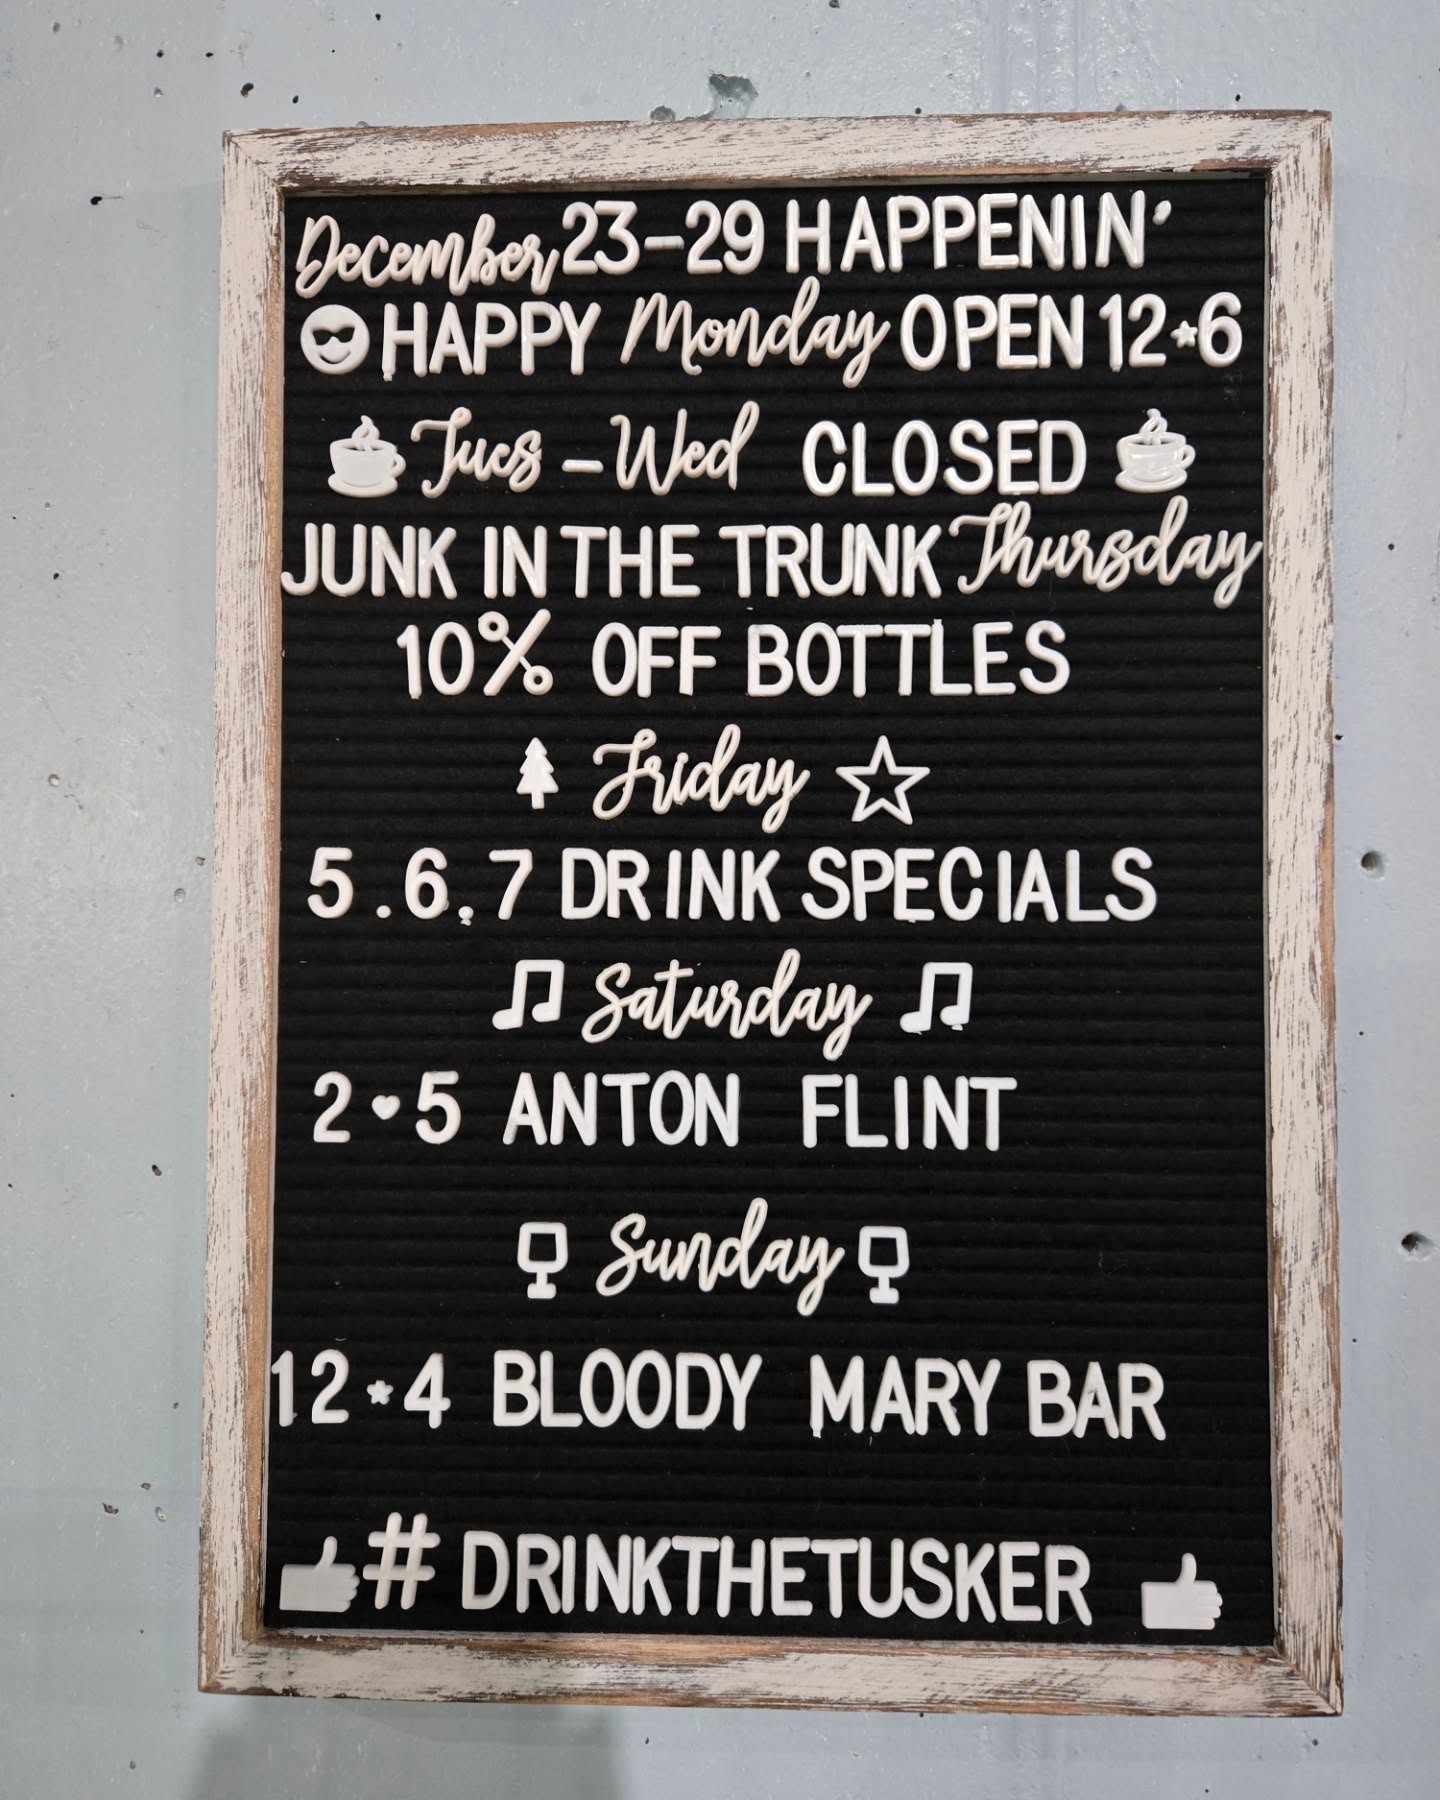 December 23-29 HAPPENIN'
HAPPY Monday OPEN 12*6
Tues - Wed CLOSED
JUNK IN THE TRUNK Thursday
10% OFF BOTTLES
Friday
5.6,7 DRINK SPECIALS
Saturday
2♥5 ANTON FLINT
Sunday
12*4 BLOODY MARY BAR
# DRINKTHETUSKER